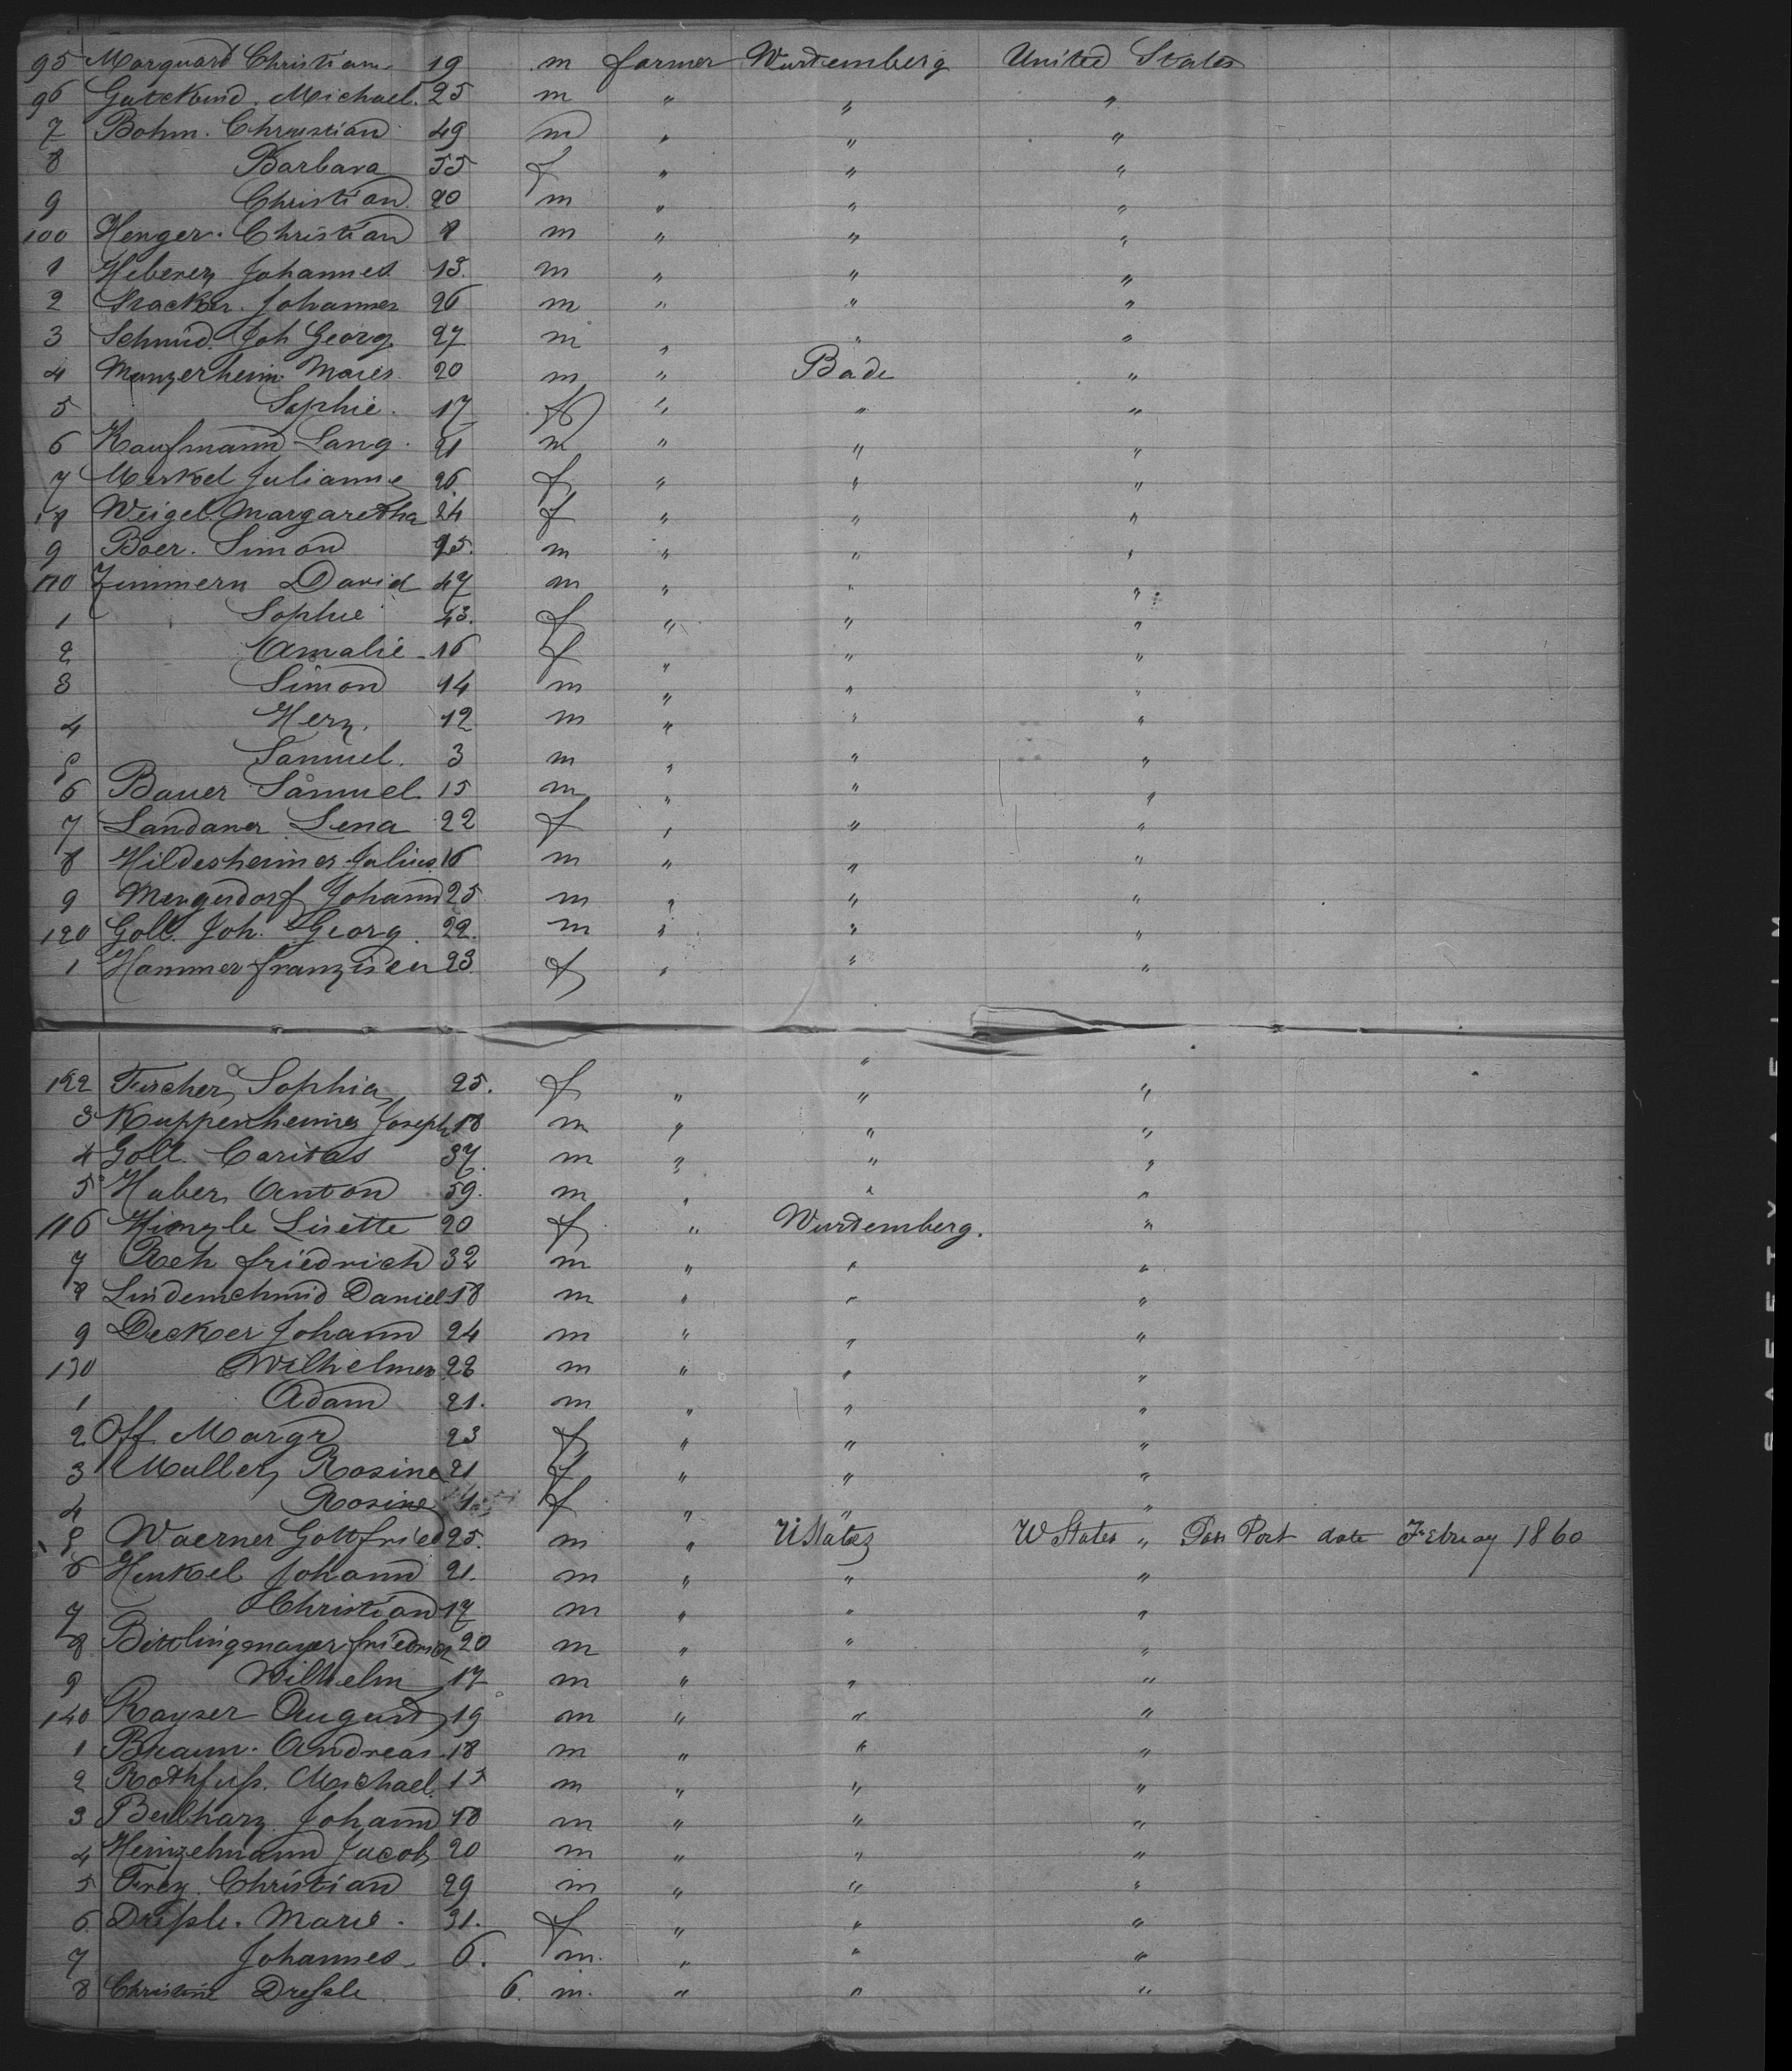 95 Marquard Christian 19 m farmer Wurtemberg United States
96 Gutekund. Michael. 25 m " " "
7 Bohm. Christian 49 m " " "
8 Barbara 55 f " " "
9 Christian 20 m " " "
100 Henger. Christian 8 m " " "
1 Heberer Johannes 13. m " " "
2 Johannes 26 m " " "
3 Schmid. Joh Georg 27 m " " "
4 Manzerheim 20 m " Bade "
5 Sophie. 17 f " " "
6 Kaufmann Lang. 21 m " " "
7 Merkel Julianne 26 f " " "
8 Weigel. Margaretha 24 f " " "
9 Boer. Simon 25. m " " "
110 Zimmern David 47 m " " "
1 Sophie 43. f " " "
2 Amalie 16 f " " "
3 Simon 14 m " " "
4 Herz. 12 m " " "
5 Samuel. 3 m " " "
6 Bauer Samuel 15 m " " "
7 Landauer Lena 22 f " " "
8 Hildesheimer Julius 16 m " " "
9 Mengesdorf Johann 25 m " " "
120 Goll. Joh. Georg. 22. m " " "
1 Hammer 23 f " " "
122 Fuscher, Sophia 25. f " " "
3 Kuppenheimer Joseph 18 m " " "
4 Goll. Caritas 37. m " " "
5 Huber, Anton 59. m " " "
116 Lisette 20 f " Wurtemberg. "
7 friedrich 32 m " " "
8 Lindenschmid Daniel 18 m " " "
9 Decker Johann 24 m " " "
130 m " " "
1 Adam 21. m " " "
2 Off Margr 23 f " " "
3 Muller, Rosine 21 f " " "
4 Rosine f " " "
5 Waerner Gottfried 25. m " UStates W States " Pass Port date 1860
6 Henkel Johann 21. m " " "
7 Christian 17 m " " "
8 Bittlingmayer friedrich 20 m " " "
9 Wilhelm 17 m " " "
140 Kayser August 19 m " " "
1 Braun. Andreas. 18 m " " "
2 Rothfuß. Michael. 15 m " " "
3 Beilharz Johann 18 m " " "
4 Heinzelmann Jacob 20 m " " "
5 Frey. Christian 29 m " " "
6. Dreßle. Marie. 31. f " " "
7 Johannes 6. m. " " "
8 Christine Dreßle 6. m. " " "